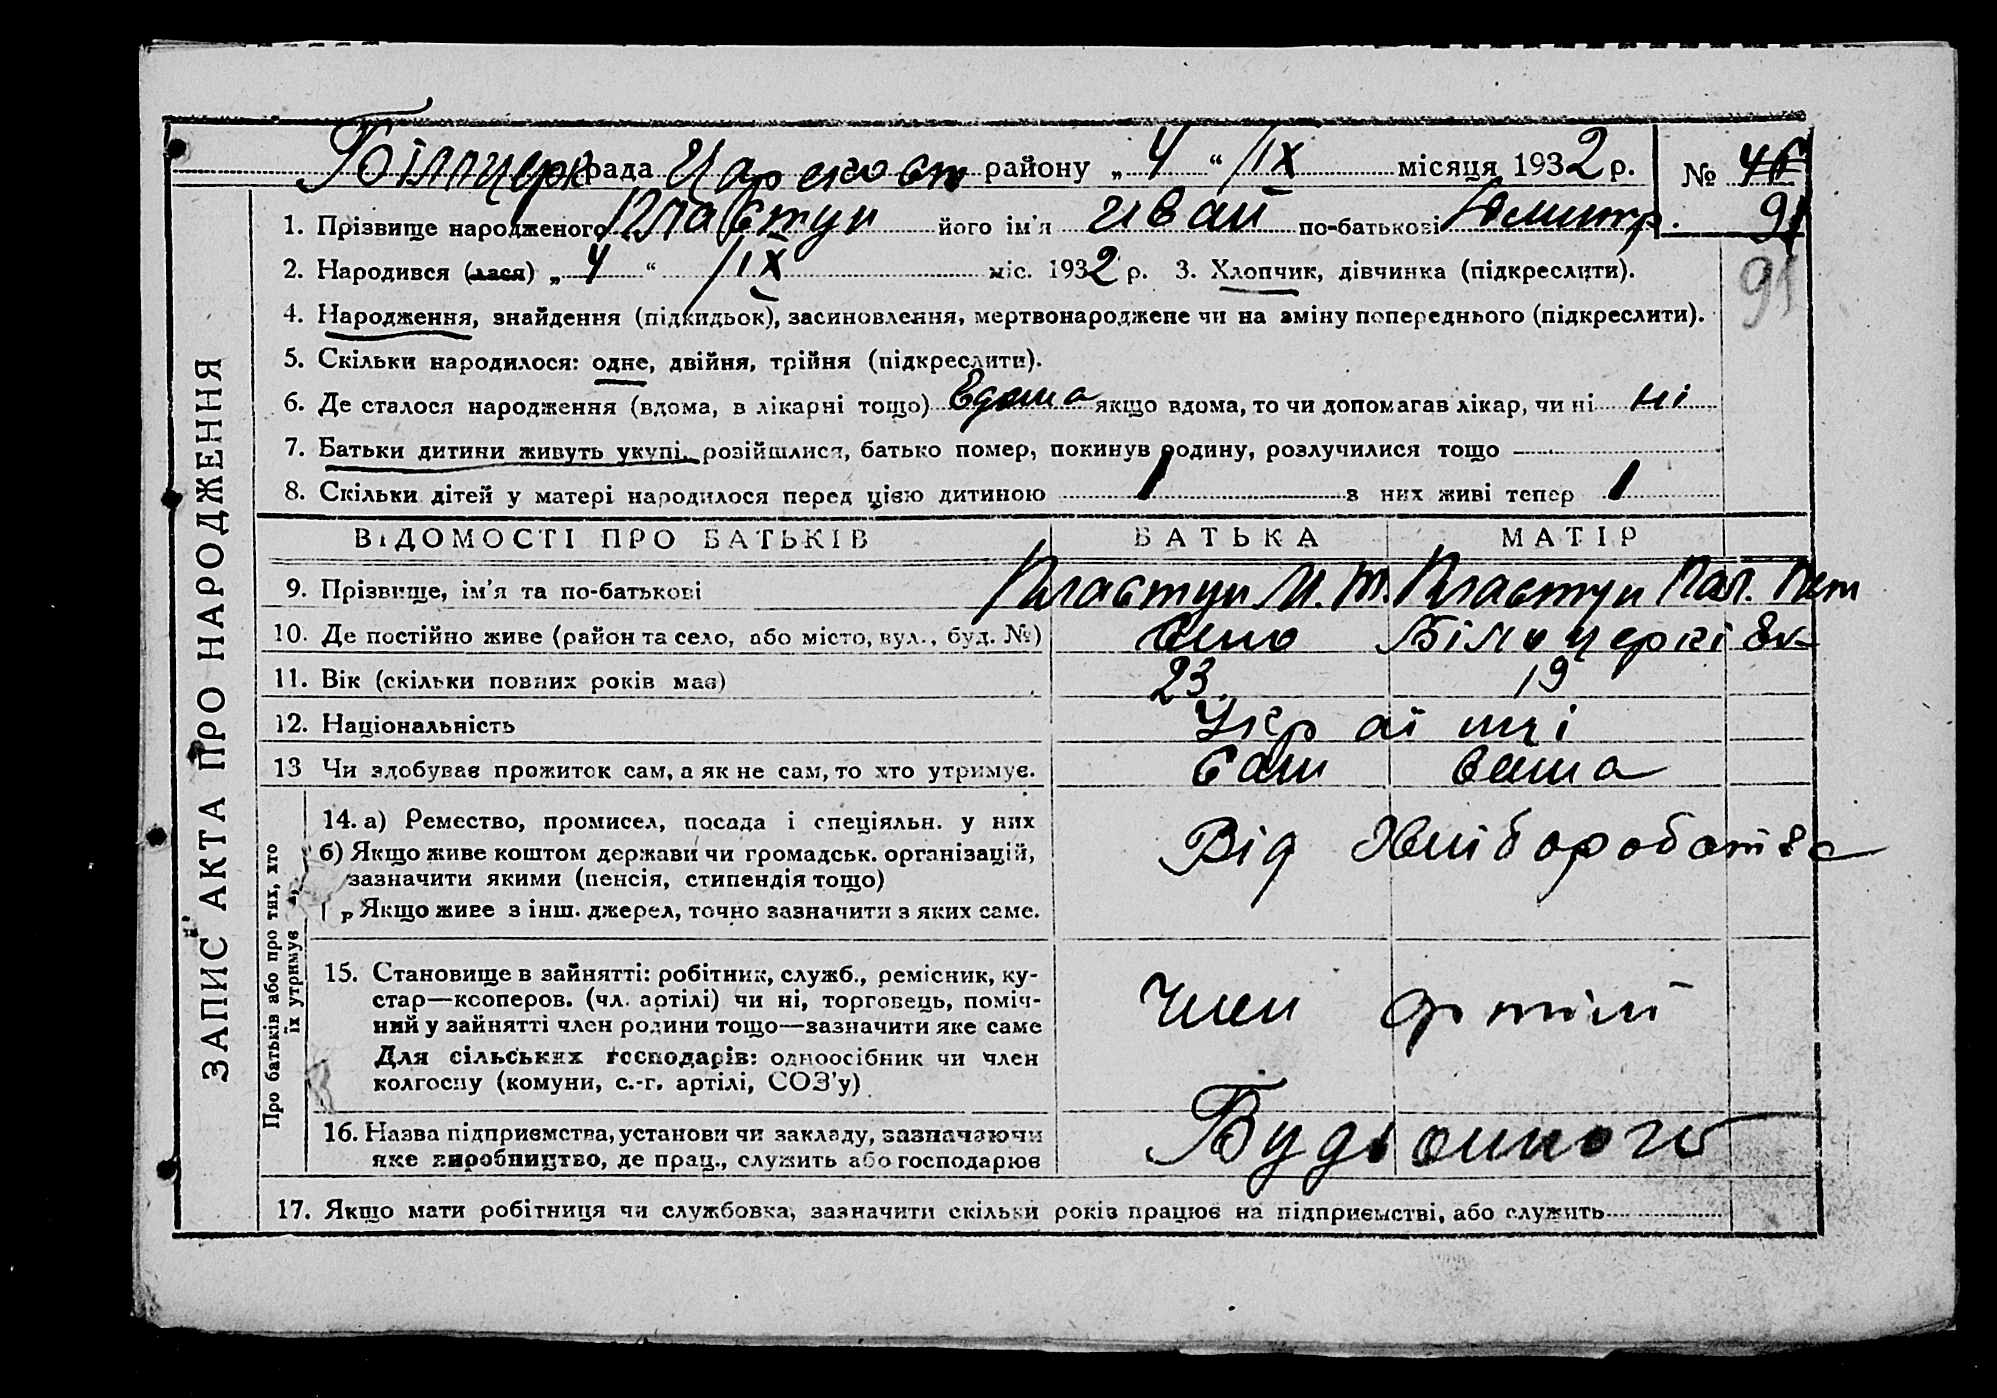 Білоцерк рада Царекост району „4“ /IX місяця 1932 р. № 46
1. Прізвище народженого Пластун його ім'я Иван по-батькові Дмитр. 91
2. Народився (лася) „4“ /IX міс. 1932 р. 3. Хлопчик, дівчинка (підкреслити). 91
4. Народження, знайдення (підкидьок), засиновлення, мертвонароджене чи на зміну попереднього (підкреслити).
5. Скільки народилося: одне, двійня, трійня (підкреслити).
6. Де сталося народження (вдома, в лікарні тощо) Вдома якщо вдома, то чи допомагав лікар, чи ні ні
7. Батьки дитини живуть укупі, розійшлися, батько помер, покинув родину, розлучилися тощо
8. Скільки дітей у матері народилося перед цією дитиною 1 з них живі тепер 1
ЗАПИС АКТА ПРО НАРОДЖЕННЯ
ВІДОМОСТІ ПРО БАТЬКІВ БАТЬКА МАТІР
9. Прізвище, ім'я та по-батькові Пластун Пластун Пал. Пет
10. Де постійно живе (район та село, або місто, вул., буд. №) Село Білоцеркі
11. Вік (скільки повних років має) 23 19
12. Національність Украї нці
13 Чи здобуває прожиток сам, а як не сам, то хто утримує. Сам сама
Про батьків або про тих, хто
їх утримує
14. а) Ремество, промисел, посада і спеціяльн. у них
б) Якщо живе коштом держави чи громадськ. організацій,
зазначити якими (пенсія, стипендія тощо)
Якщо живе з інш. джерел, точно зазначити з яких саме.
Від Хліборобства
15. Становище в зайнятті: робітник, служб., ремісник, ку-
стар—кооперов. (чл. артілі) чи ні, торговець, поміч-
ний у зайнятті член родини тощо—зазначити яке саме
Для сільських господарів: одноосібник чи член
колгоспу (комуни, с.-г. артілі, СОЗ'у)
Член артілі
16. Назва підприємства, установи чи закладу, зазначаючи
яке виробництво, де прац., служить або господарює
Будьонного
17. Якщо мати робітниця чи службовка, зазначити скільки років працює на підприємстві, або служить